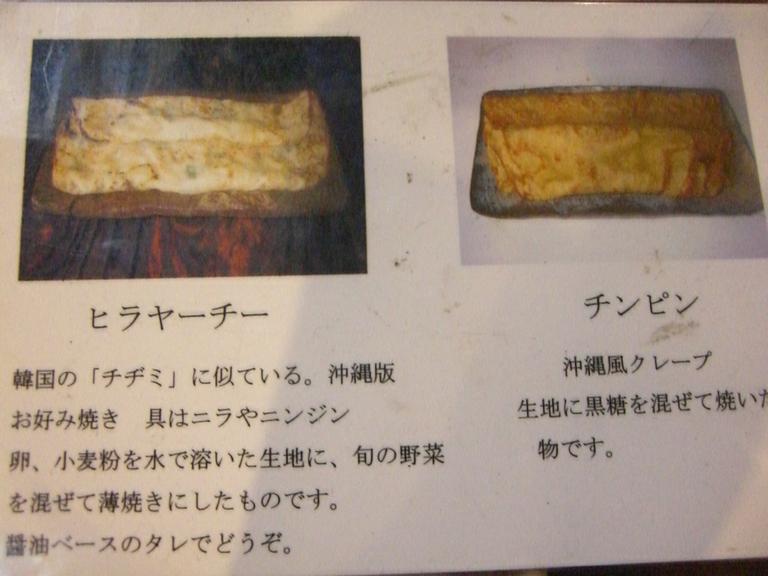 ヒラヤーチー
韓国の「チヂミ」に似ている。沖縄版
お好み焼き　具はニラやニンジン
卵、小麦粉を水で溶いた生地に、旬の野菜
を混ぜて薄焼きにしたものです。
醤油ベースのタレでどうぞ。
チンピン
沖縄風クレープ
生地に黒糖を混ぜて焼いた
物です。